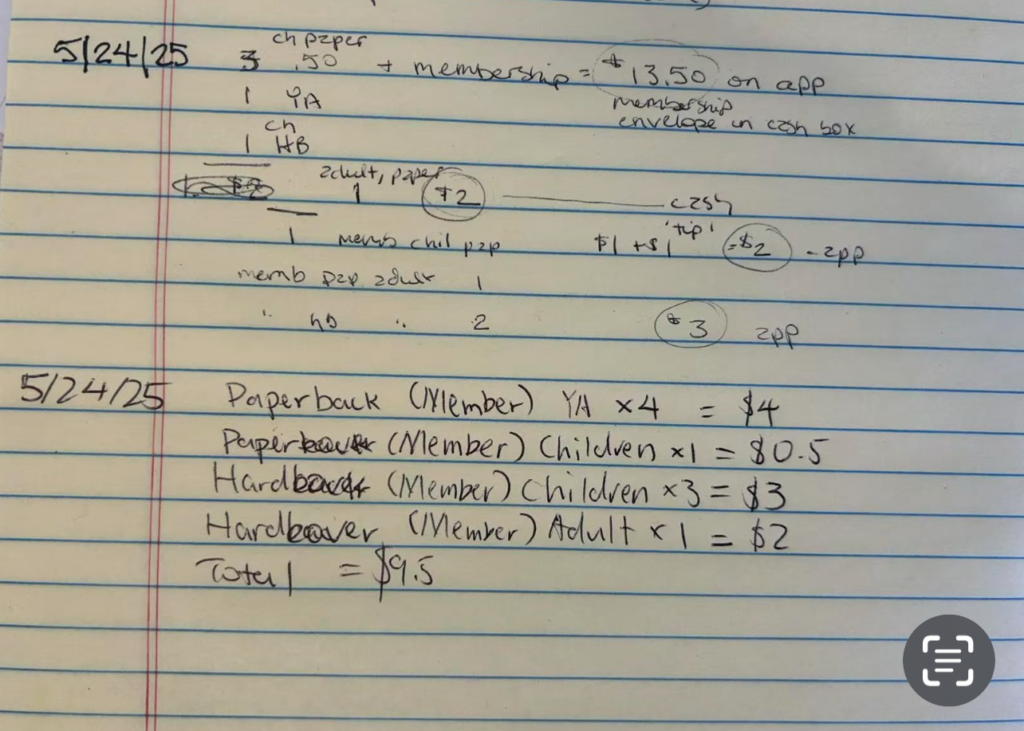 5/24/25 3 ch paper .50 + membership = $13.50 on app
1 YA membership
envelope in cash box
1 ch HB
adult, paper
1 $2 cash
1 memb chil pap $1 + $1 'tip' = $2 - app
memb pap adult 1
" hb " 2 $3 app
5/24/25 Paperback (Member) YA ×4 = $4
Paperback (Member) Children ×1 = $0.5
Hardback (Member) Children ×3 = $3
Hardcover (Member) Adult ×1 = $2
Total = $9.5